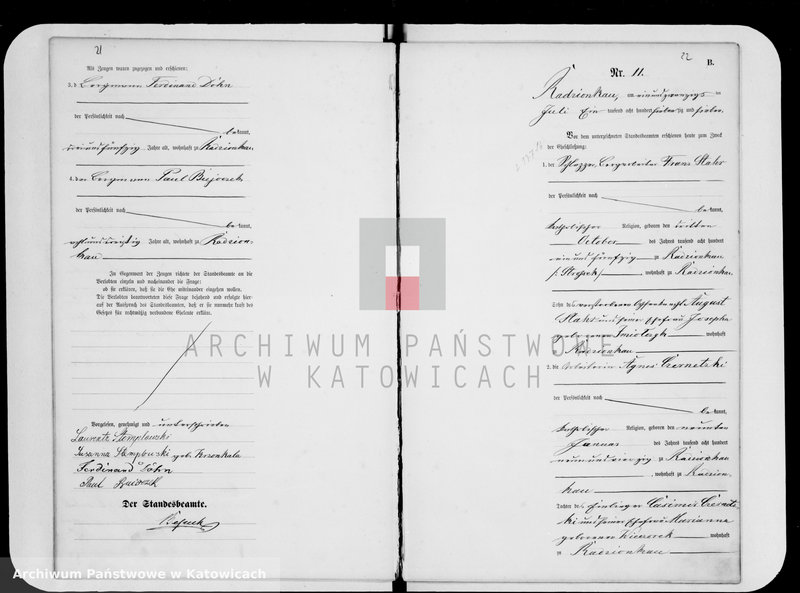 21
Als Zeugen waren zugezogen und erschienen:
3. d Bergmann Ferdinand Döhn
der Persönlichkeit nach
bekannt,
Jahre alt, wohnhaft zu Radzionkau
4. der Bergmann Paul
der Persönlichkeit nach
bekannt,
achtunddreißig Jahre alt, wohnhaft zu Radzion-
kau
In Gegenwart der Zeugen richtete der Standesbeamte an die
Verlobten einzeln und nacheinander die Frage:
ob sie erklären, daß sie die Ehe miteinander eingehen wollen.
Die Verlobten beantworteten diese Frage bejahend und erfolgte hier-
auf der Ausspruch des Standesbeamten, daß er sie nunmehr kraft des
Gesetzes für rechtmäßig verbundene Eheleute erkläre.
Vorgelesen, genehmigt und unterschrieben
Stemplowski
Susanna geb.
Ferdinand Döhn
Paul
Der Standesbeamte.
22
B.
Nr. 11.
Radzionkau, am einundzwanzigs ten
Juli Ein tausend acht hundert siebenzig und sieben.
Vor dem unterzeichneten Standesbeamten erschienen heute zum Zweck
der Eheschließung:
1. der Bergarbeiter Franz
der Persönlichkeit nach
bekannt,
katholischer Religion, geboren den dritten
October des Jahres tausend acht hundert
einundfünfzig zu Radzionkau
, wohnhaft zu Radzionkau
Sohn des verstorbenen August
und seiner Ehefrau Josepha
geborenen wohnhaft
zu Radzionkau
2. die Arbeiterin Agnes Czernetzki
der Persönlichkeit nach
bekannt,
katholischer Religion, geboren den neunten
Januar des Jahres tausend acht hundert
neunundvierzig zu Radzionkau
, wohnhaft zu Radzion-
kau
Tochter des Einlieger Casimir Czernetz-
ki und seiner Ehefrau Marianna
geborenen Wieczorek wohnhaft
zu Radzionkau
ARCHIWUM PAŃSTWOWE
W KATOWICACH
Archiwum Państwowe w Katowicach